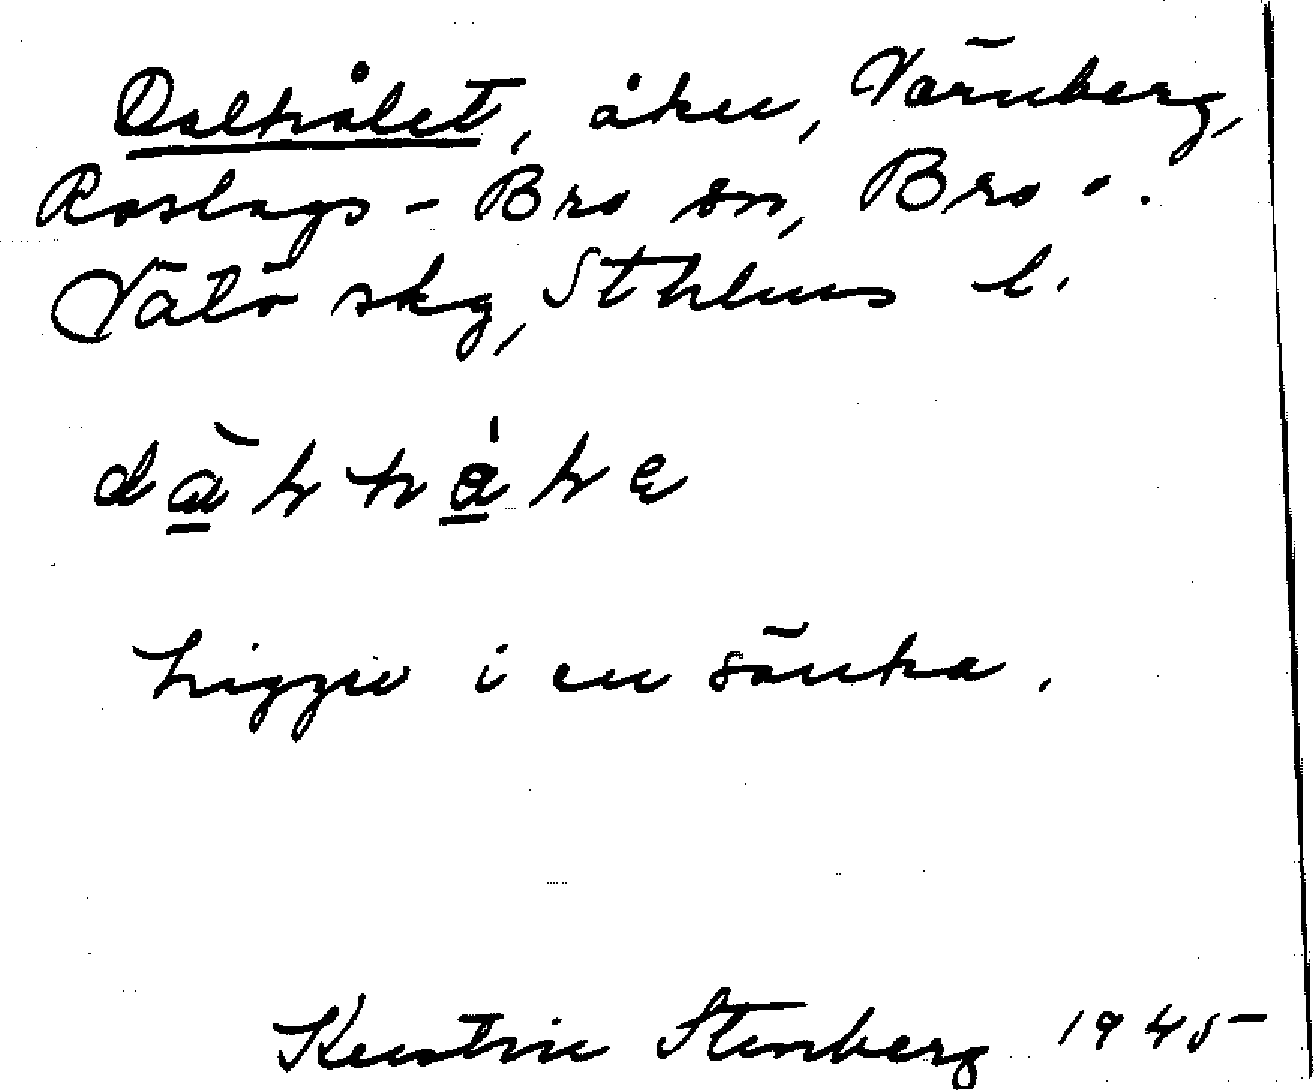 Dalhålet, åker, Värnberg,
Roslags-Bro sn, Bro o.
Vätö skg, Sthlms l.
Ligger i en sänka.
Kerstin Stenberg 1945